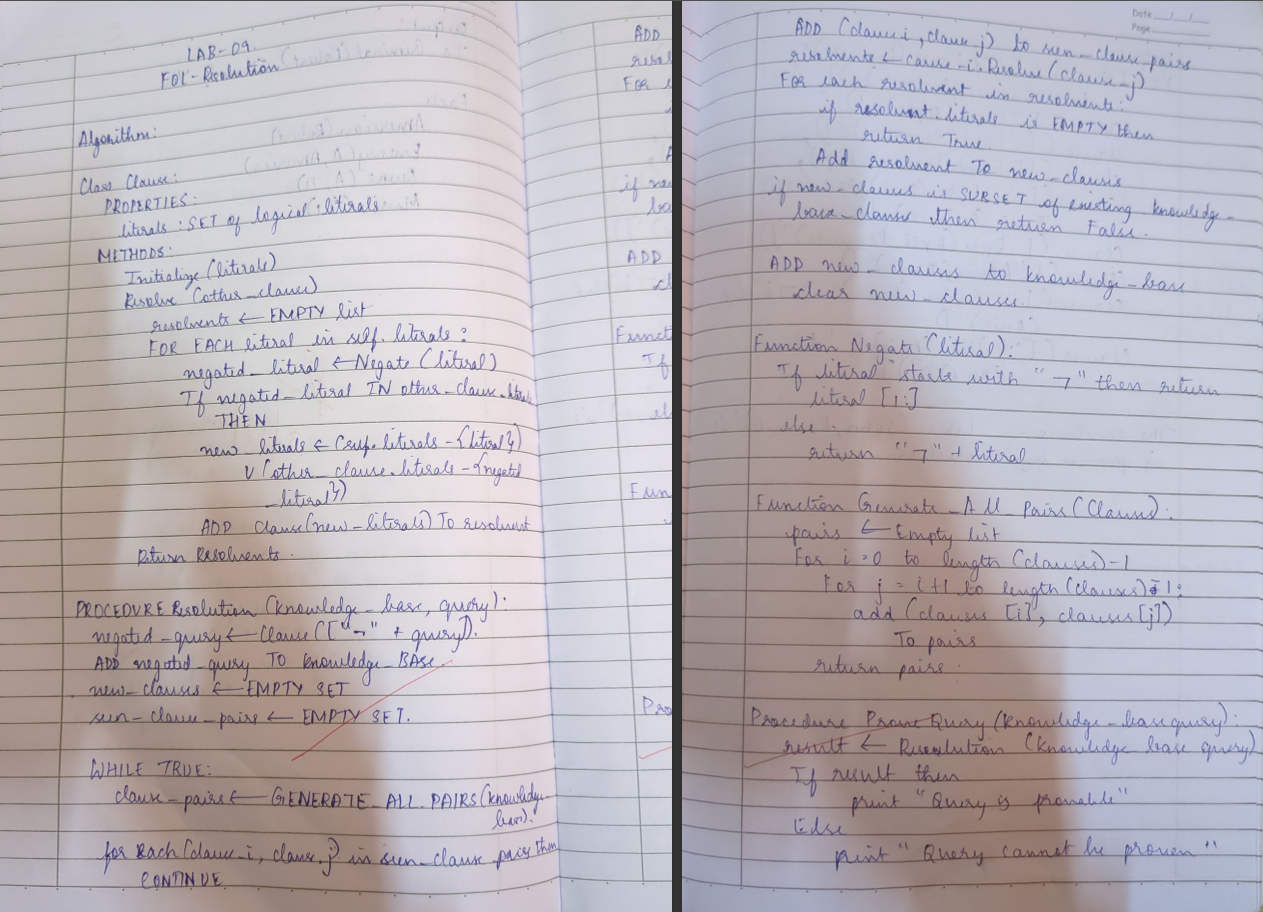 LAB-09.
FOL-Resolution
Algorithm:
Class Clause:
PROPERTIES:
literals : SET of logical literals
METHODS:
Initialize (literals)
Resolve (other_clause)
resolvents ← EMPTY list
FOR EACH literal in self.literals:
negated_literal ← Negate (literal)
If negated_literal IN other_clause.literals
THEN
new_literals ← (self.literals - {literal})
∪ (other_clause.literals - {negated
_literal})
ADD clause(new-literals) To resolvent
Return Resolvents.
PROCEDURE Resolution (knowledge-base, query):
negated-query ← Clause (["¬" + query]).
ADD negated-query TO knowledge-BASE.
new-clauses ← EMPTY SET
seen-clause-pairs ← EMPTY SET.
WHILE TRUE:
clause-pairs ← GENERATE_ALL_PAIRS (knowledge-
base).
for each (clause-i, clause-j) in seen-clause pairs then
CONTINUE
ADD
resol
FOR
if new
ba
ADD
cl
Funct
If
el
Fun
Pro
Date
Page
ADD (clause i, clause j) to seen-clause pairs
resolvents ← cause-i. Resolve (clause-j)
FOR each resolvent in resolvents:
if resolvent.literals is EMPTY then
return True.
Add resolvent To new-clauses
if new-clauses is SURSET of existing knowledge-
base-clauses then return False.
ADD new-clauses to knowledge-base
clear new-clauses.
Function Negate (literal):
If literal starts with "¬" then return
literal [1:]
else.
return "¬" + literal
Function Generate_All_Pairs (Clauses):
pairs ← Empty list
For i=0 to length (clauses)-1
For j = i+1 to length(clauses)-1:
add (clauses [i], clauses[j])
To pairs
return pairs.
Procedure Prove Query (Knowledge-base query):
result ← Resolution (knowledge base query)
If result then
print "Query is provable"
Else
print "Query cannot be proven"